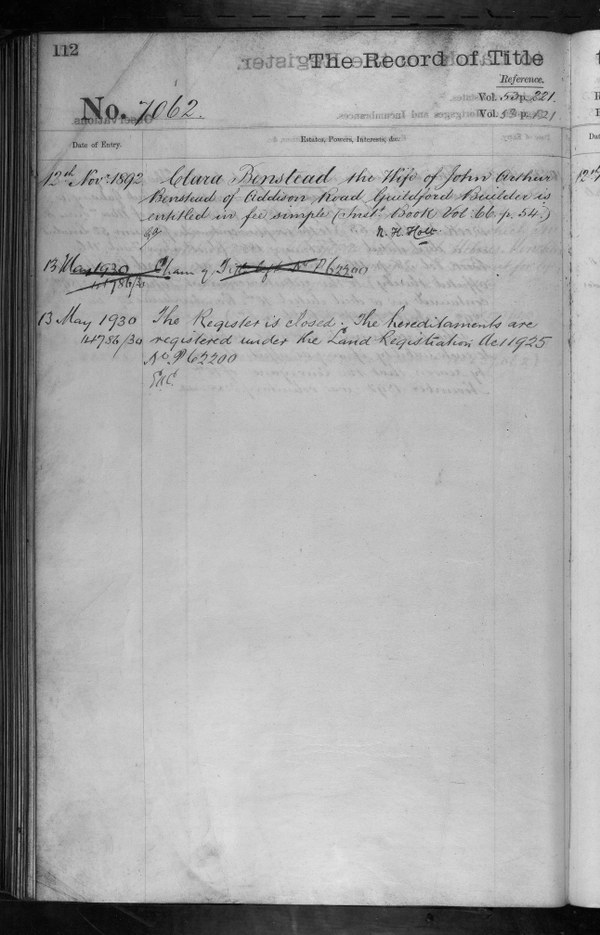 112
The Record of Title
Reference.
No. 7062.
Vol. 53 p. 221
Vol. 53 p. 121
Date of Entry.
Estates, Powers, Interests, &c.
12th Nov. 1892 Clara Benstead the Wife of John Arthur
Benstead of Addison Road Guildford Builder is
entitled in fee simple (Inst. Book Vol. 66 p. 54.)
N. H. Holt
13 May 1930 P62200
141786/30
13 May 1930 The Register is closed. The hereditaments are
141786/30 registered under the Land Registration Act 1925
No. P62200
12th